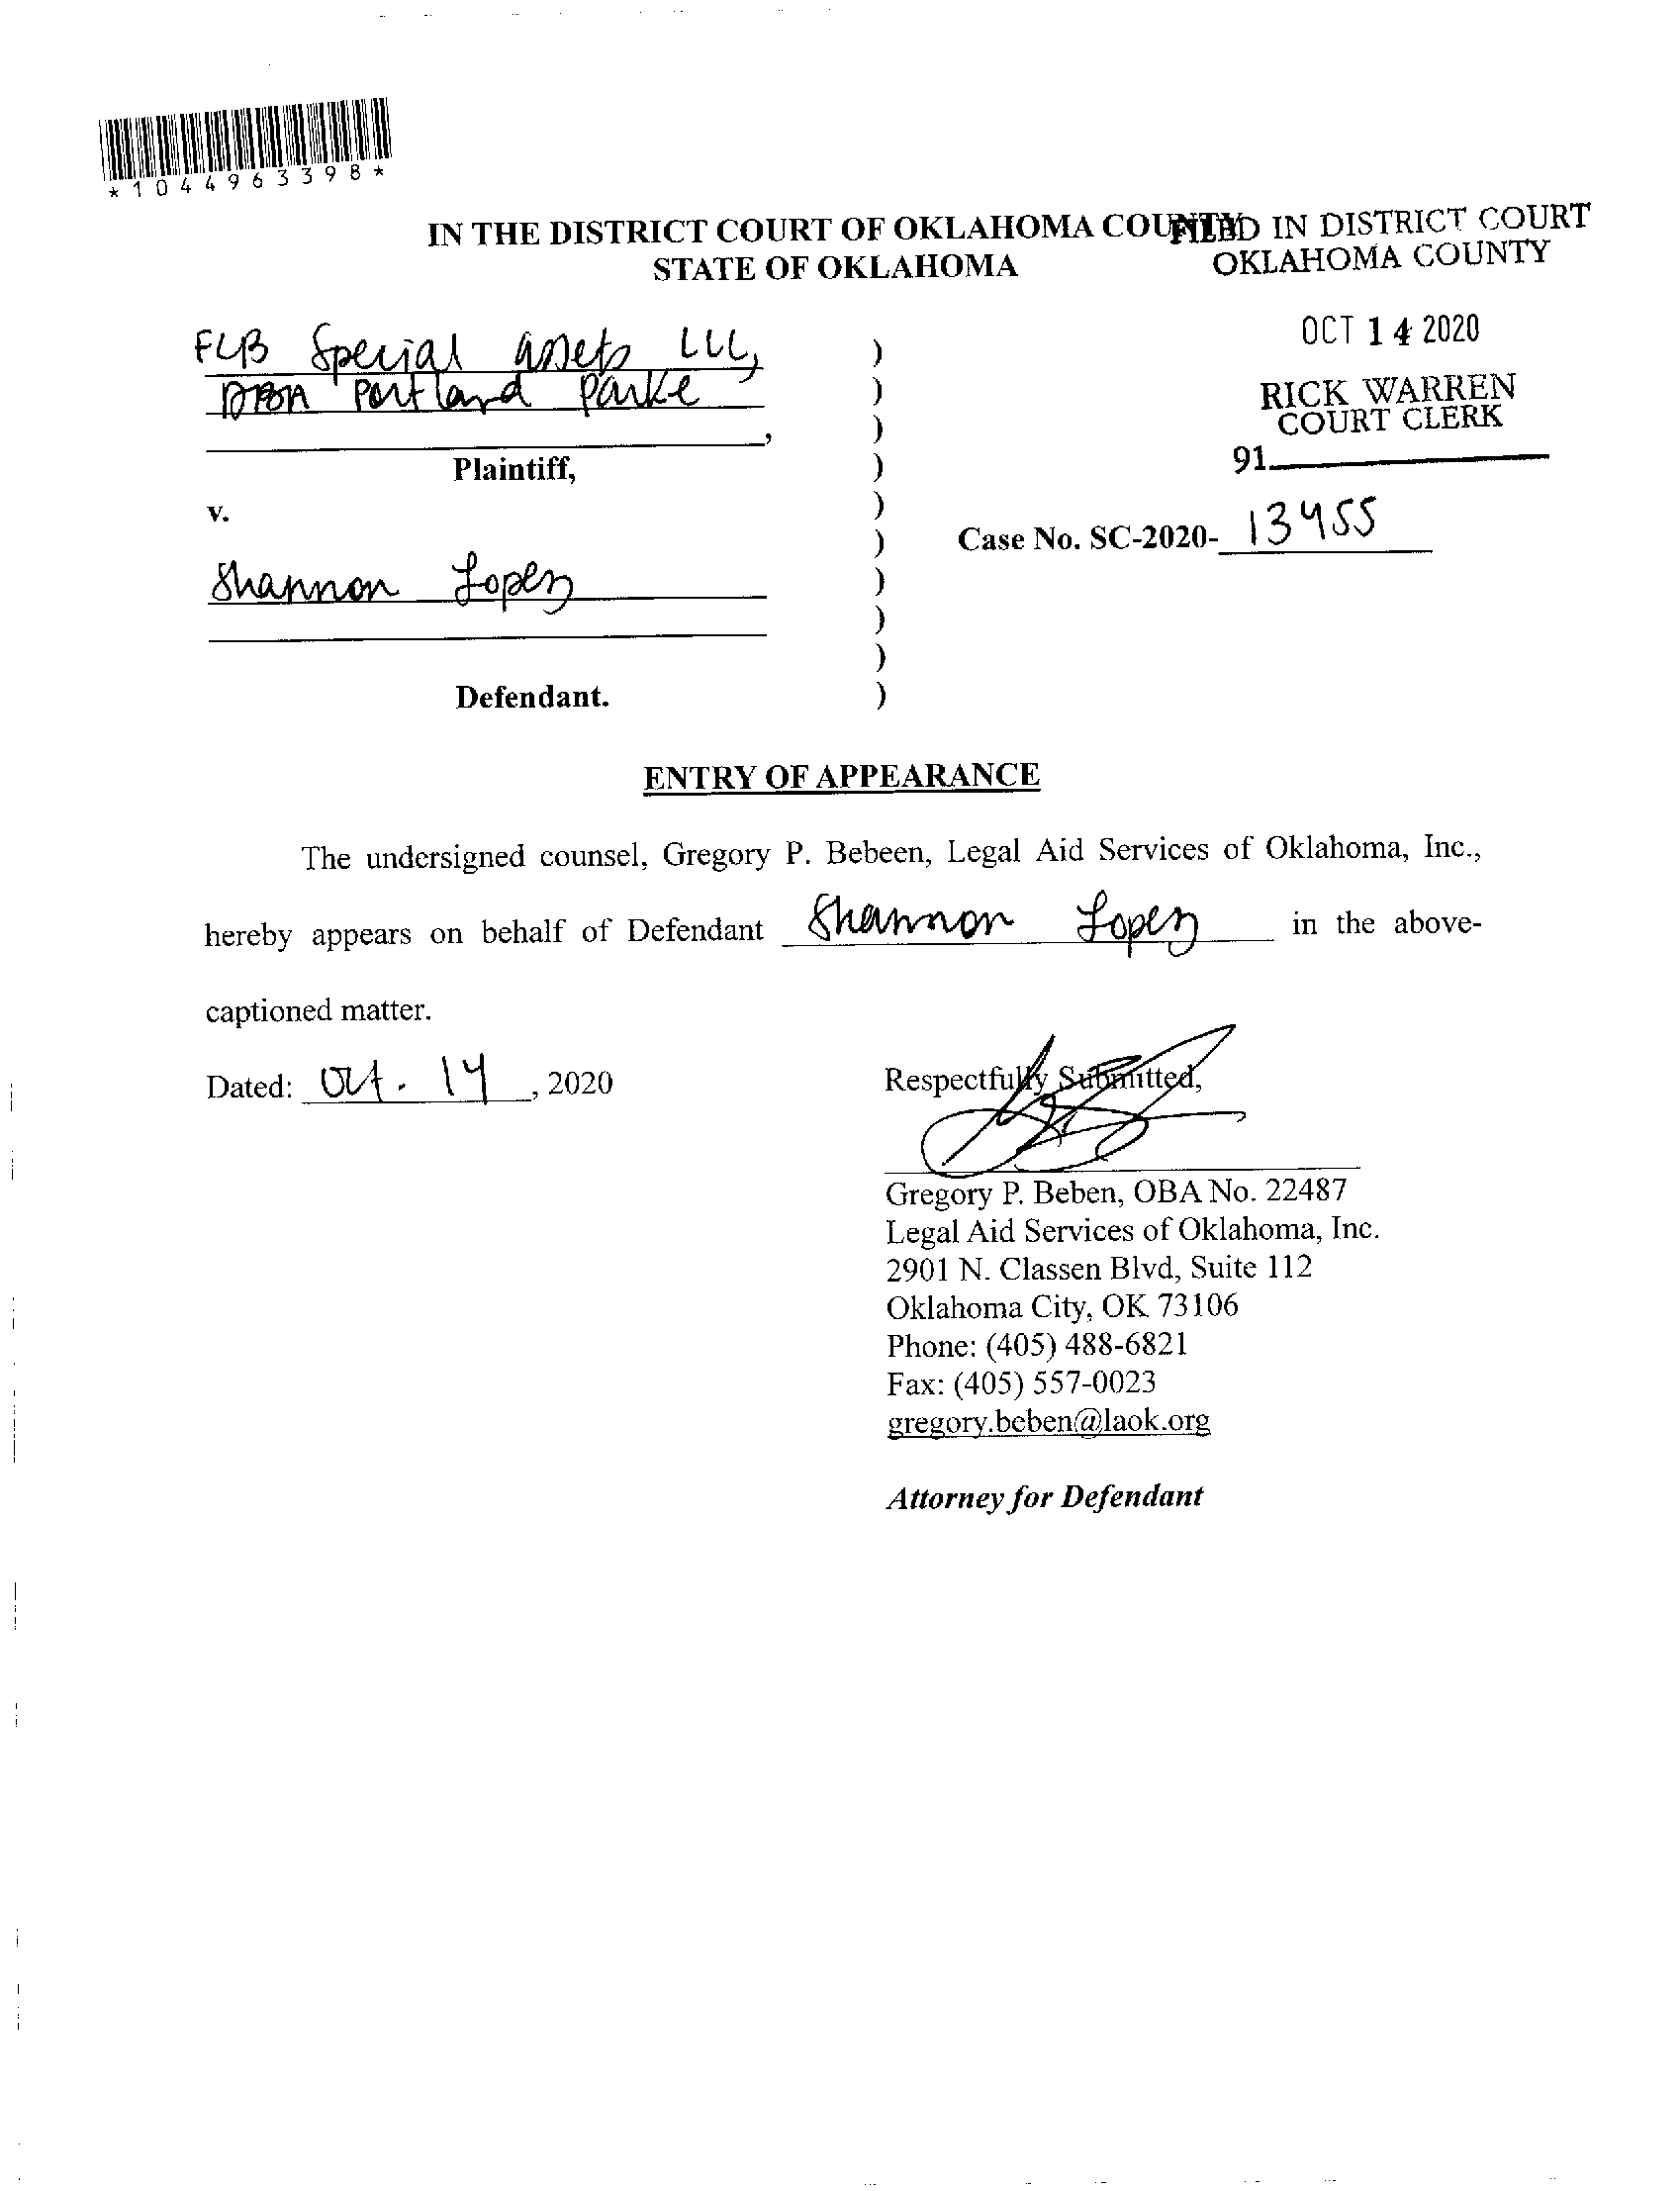 *1044963398*
IN THE DISTRICT COURT OF OKLAHOMA COUNTY
STATE OF OKLAHOMA
FILED IN DISTRICT COURT
OKLAHOMA COUNTY
OCT 14 2020
RICK WARREN
COURT CLERK
91
FLB Special assets LLC,
DBA Portland Parke
,
Plaintiff,
v.
Case No. SC-2020- 13455
Shannon Lopez
Defendant.
)
)
)
)
)
)
)
)
)
)
ENTRY OF APPEARANCE
The undersigned counsel, Gregory P. Bebeen, Legal Aid Services of Oklahoma, Inc.,
hereby appears on behalf of Defendant Shannon Lopez in the above-
captioned matter.
Dated: Oct. 14, 2020
Respectfully Submitted,
Gregory P. Beben, OBA No. 22487
Legal Aid Services of Oklahoma, Inc.
2901 N. Classen Blvd, Suite 112
Oklahoma City, OK 73106
Phone: (405) 488-6821
Fax: (405) 557-0023
gregory.beben@laok.org
Attorney for Defendant